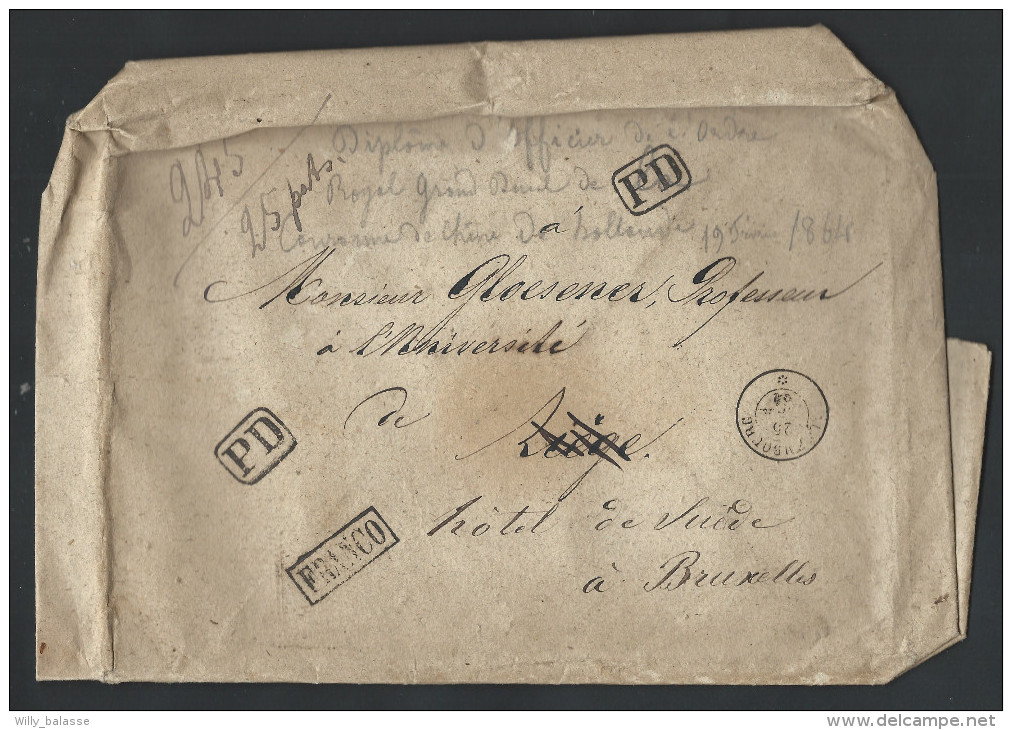 Diplôme d'officier de l'ordre
245
25 pts.
Royal Grand Ducal de la
PD
Couronne de Chêne de hollande 19 février 1864
à
Monsieur Gloesener, Professeur
à l'Université
de Liège.
LUXEMBOURG
25
PD
FRANCO
hôtel de Suède
à Bruxelles
Willy_balasse
delcampe.net